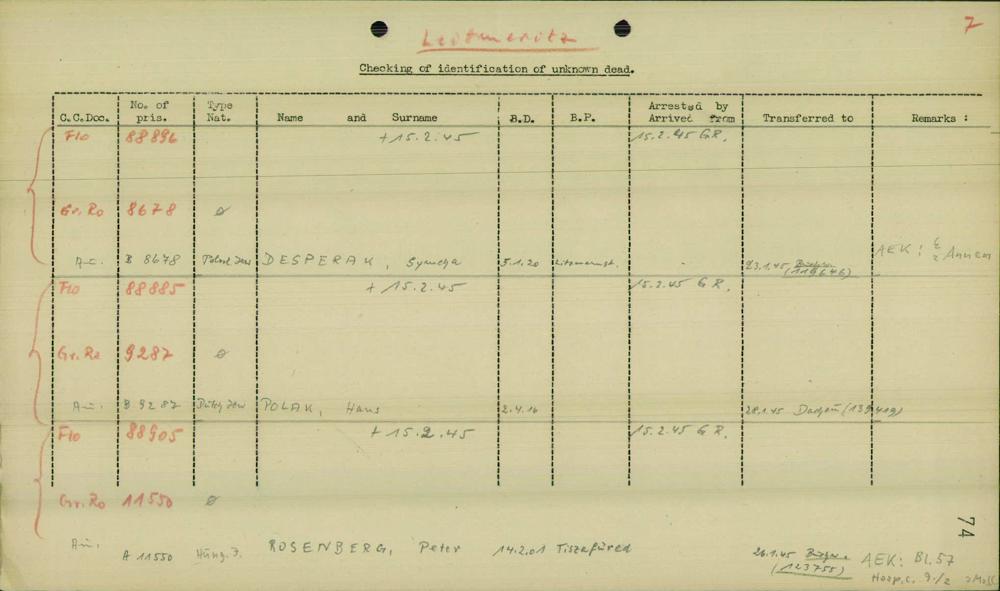 7
Leitmeritz
Checking of identification of unknown dead.
C.C.Doc. No. of pris. Type Nat. Name and Surname B.D. B.P. Arrested by Arrived from Transferred to Remarks :
Flo 88896 + 15.2.45 15.2.45 GR.
Gr.Ro 8678 ø
Au. B 8678 DESPERAK, 5.1.20 23.1.45 AEK:
Flo 88885 + 15.2.45 15.2.45 GR.
Gr.Ro 9287 ø
Au. B 9287 Dutch Jew POLAK, Hans 2.4.16 28.1.45 Dachau
Flo 88905 + 15.2.45 15.2.45 GR.
Gr.Ro 11550 ø
Au. A 11550 Hung. J. ROSENBERG, Peter 14.2.01 Tiszafüred 26.1.45 AEK: Bl.57
(123755)
74